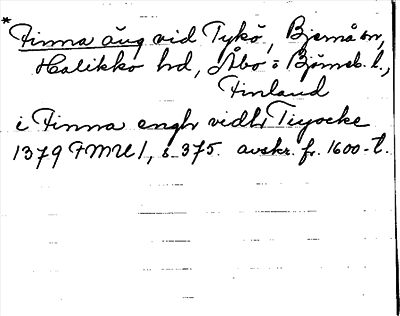 * Finna äng vid Tykö, Bjernå sn,
Halikko hd, Åbo o Björneb. l.,
Finland
i Finna engh vidh Tiyocke
1379 FMU 1, s 375. avskr. fr. 1600-t.